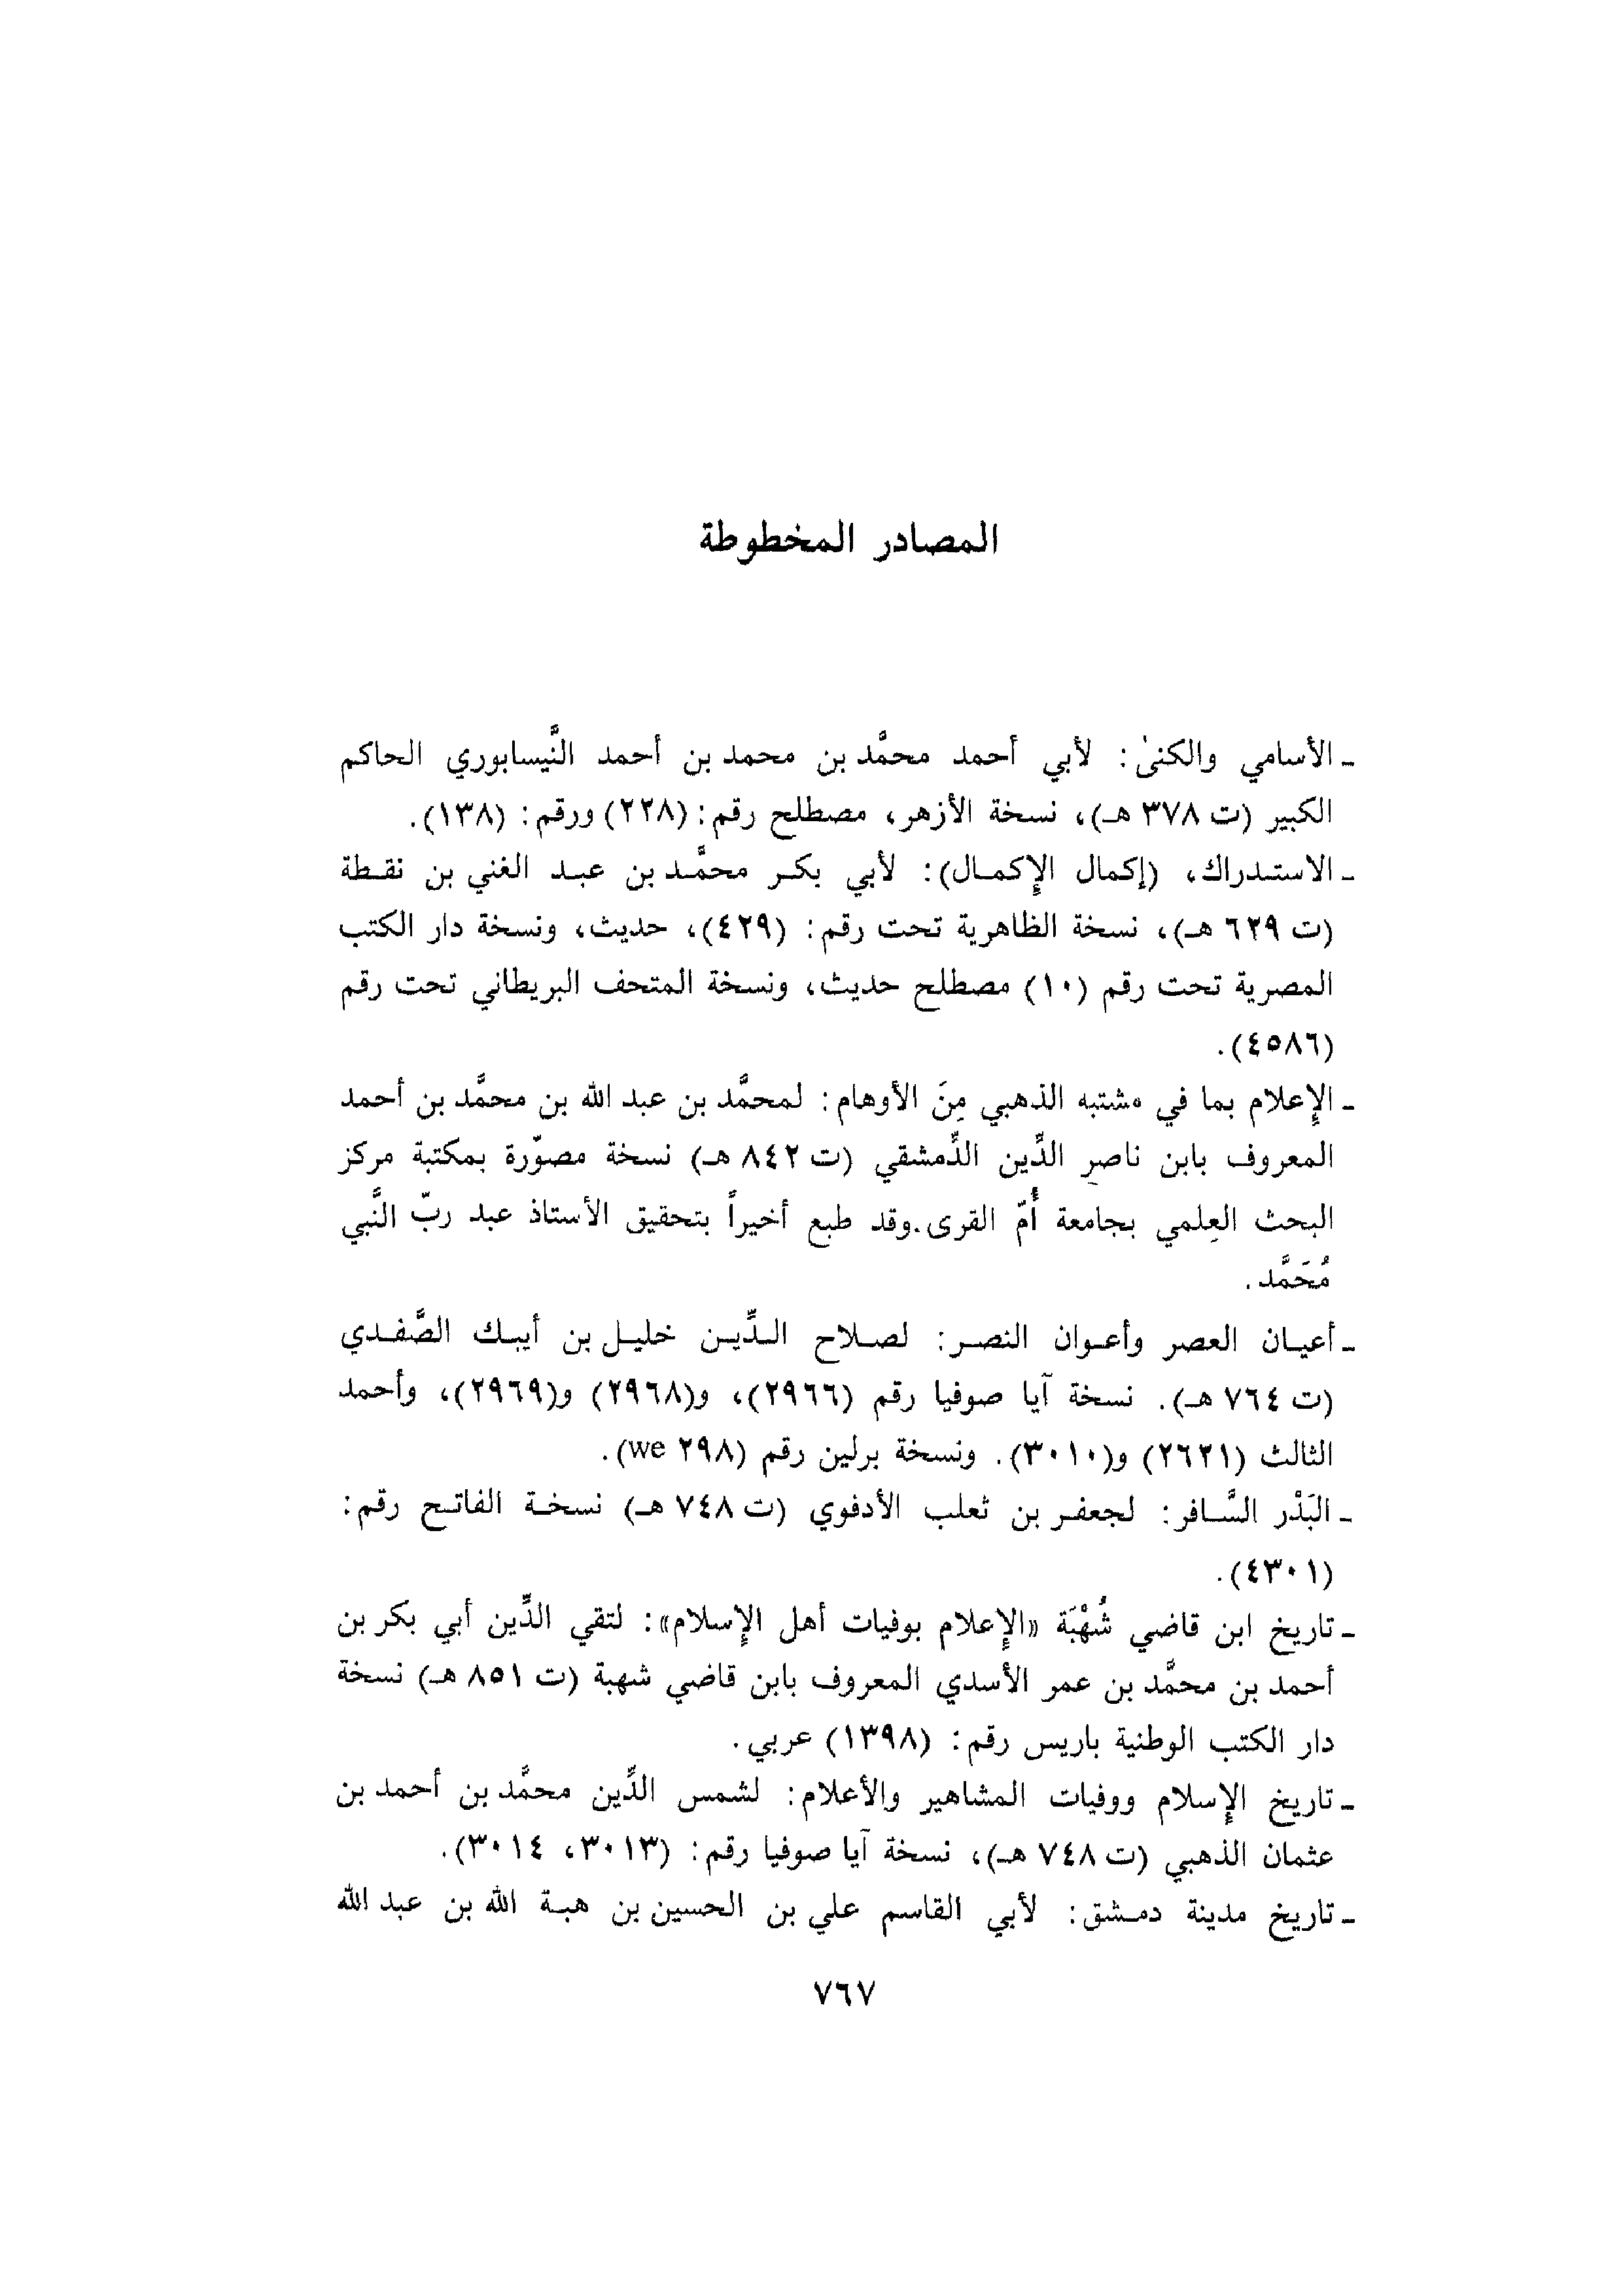 المصادر المخطوطة
ـ الأسامي والكنىٰ: لأبي أحمد محمَّد بن محمد بن أحمد النَّيسابوري الحاكم
الكبير (ت ٣٧٨ هـ)، نسخة الأزهر، مصطلح رقم: (٢٢٨) ورقم: (١٣٨).
ـ الاستدراك، (إكمال الإكمال): لأبي بكر محمَّد بن عبد الغني بن نقطة
(ت ٦٢٩ هـ)، نسخة الظاهرية تحت رقم: (٤٢٩)، حديث، ونسخة دار الكتب
المصرية تحت رقم (١٠) مصطلح حديث، ونسخة المتحف البريطاني تحت رقم
(٤٥٨٦).
ـ الإعلام بما في مشتبه الذهبي مِنَ الأوهام: لمحمَّد بن عبد الله بن محمَّد بن أحمد
المعروف بابن ناصر الدِّين الدِّمشقي (ت ٨٤٢ هـ) نسخة مصوّرة بمكتبة مركز
البحث العِلمي بجامعة أُمّ القرى.وقد طبع أخيراً بتحقيق الأستاذ عبد ربّ النَّبي
مُحَمَّد.
ـ أعيان العصر وأعوان النصر: لصلاح الدِّين خليل بن أيبك الصَّفدي
(ت ٧٦٤ هـ). نسخة آيا صوفيا رقم (٢٩٦٦)، و(٢٩٦٨) و(٢٩٦٩)، وأحمد
الثالث (٢٦٢١) و(٣٠١٠). ونسخة برلين رقم (٢٩٨ we).
ـ البَدْر السَّافر: لجعفر بن ثعلب الأدفوي (ت ٧٤٨ هـ) نسخة الفاتح رقم:
(٤٣٠١).
ـ تاريخ ابن قاضي شُهْبَة «الإعلام بوفيات أهل الإسلام»: لتقي الدِّين أبي بكر بن
أحمد بن محمَّد بن عمر الأسدي المعروف بابن قاضي شهبة (ت ٨٥١ هـ) نسخة
دار الكتب الوطنية باريس رقم: (١٣٩٨) عربي.
ـ تاريخ الإسلام ووفيات المشاهير والأعلام: لشمس الدِّين محمَّد بن أحمد بن
عثمان الذهبي (ت ٧٤٨ هـ)، نسخة آيا صوفيا رقم: (٣٠١٣، ٣٠١٤).
ـ تاريخ مدينة دمشق: لأبي القاسم علي بن الحسين بن هبة الله بن عبد الله
٧٦٧